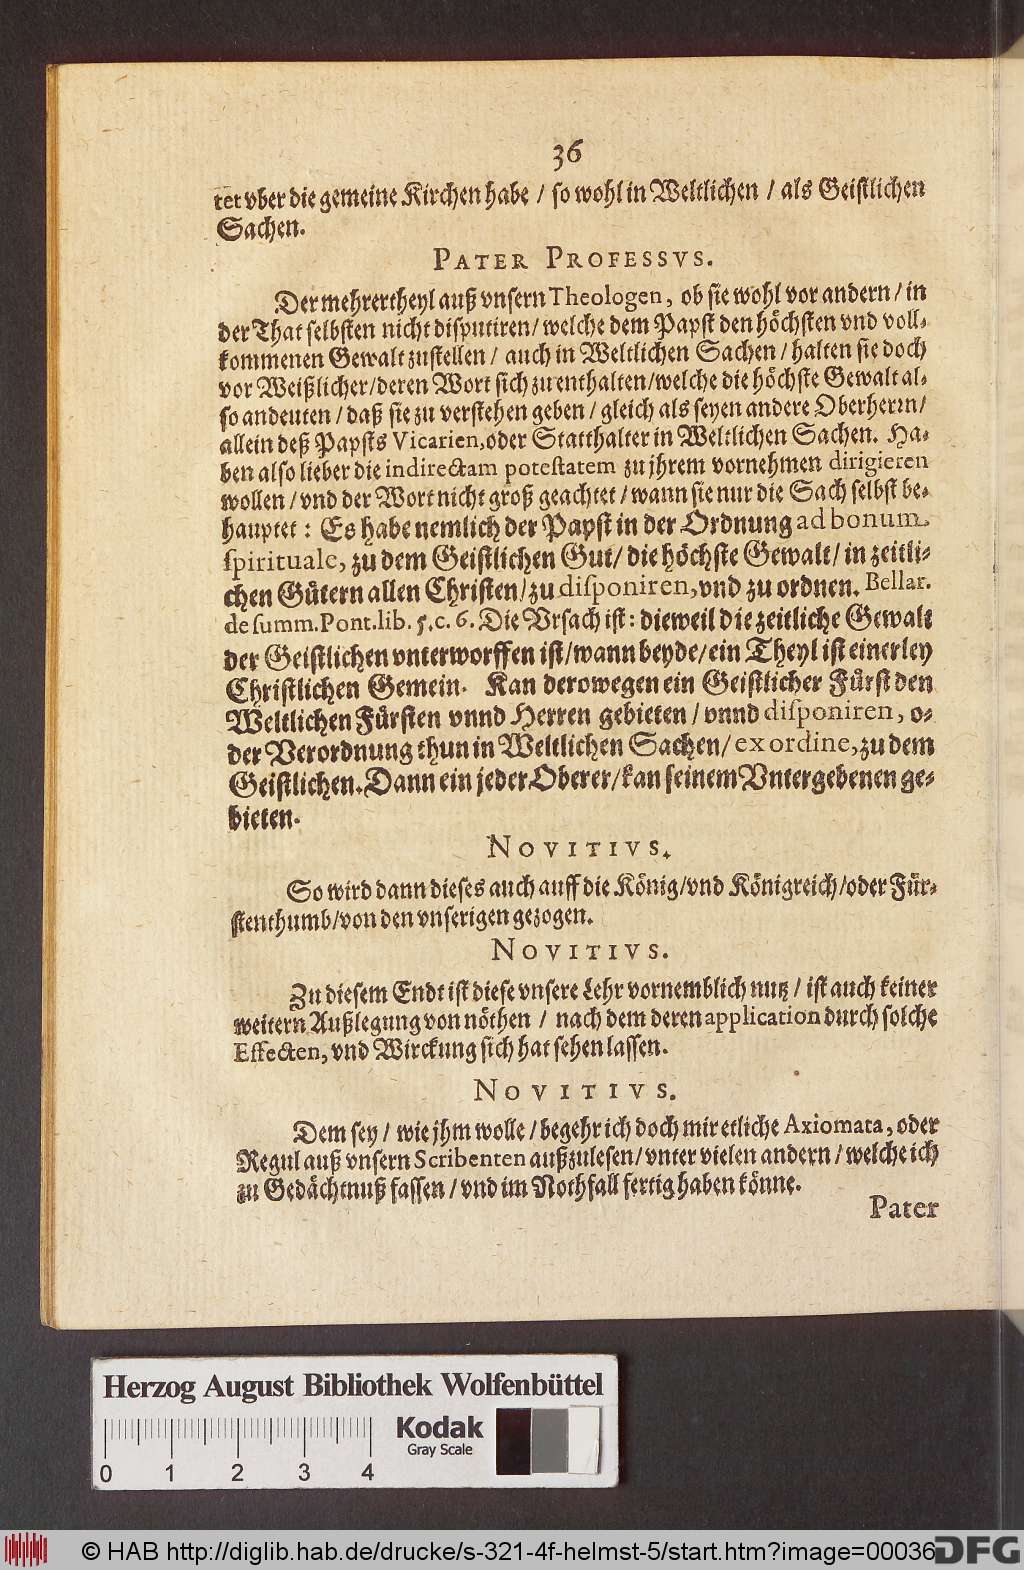 36
tet vber die gemeine Kirchen habe / so wohl in Weltlichen / als Geistlichen
Sachen.
PATER PROFESSVS.
Der mehrertheyl auß vnsern Theologen, ob sie wohl vor andern / in
der That selbsten nicht disputiren / welche dem Papst den höchsten vnd voll-
kommenen Gewalt zustellen / auch in Weltlichen Sachen / halten sie doch
vor Weißlicher / deren Wort sich zu enthalten / welche die höchste Gewalt al-
so andeuten / daß sie zu verstehen geben / gleich als seyen andere Oberherrn /
allein deß Papsts Vicarien, oder Statthalter in Weltlichen Sachen. Ha-
ben also lieber die indirectam potestatem zu jhrem vornehmen dirigieren
wollen / vnd der Wort nicht groß geachtet / wann sie nur die Sach selbst be-
hauptet: Es habe nemlich der Papst in der Ordnung ad bonum
spirituale, zu dem Geistlichen Gut / die höchste Gewalt / in zeitli-
chen Gütern allen Christen / zu disponiren, vnd zu ordnen. Bellar.
de summ. Pont. lib. 5. c. 6. Die Vrsach ist: dieweil die zeitliche Gewalt
der Geistlichen vnterworffen ist / wann beyde / ein Theyl ist einerley
Christlichen Gemein. Kan derowegen ein Geistlicher Fürst den
Weltlichen Fürsten vnnd Herren gebieten / vnnd disponiren, o-
der Verordnung thun in Weltlichen Sachen / ex ordine, zu dem
Geistlichen. Dann ein jeder Oberer / kan seinem Vntergebenen ge-
bieten.
NOVITIVS.
So wird dann dieses auch auff die König / vnd Königreich / oder Für-
stenthumb / von den vnserigen gezogen.
NOVITIVS.
Zu diesem Endt ist diese vnsere Lehr vornemblich nutz / ist auch keiner
weitern Außlegung von nöthen / nach dem deren application durch solche
Effecten, vnd Wirckung sich hat sehen lassen.
NOVITIVS.
Dem sey / wie jhm wolle / begehr ich doch mir etliche Axiomata, oder
Regul auß vnsern Scribenten außzulesen / vnter vielen andern / welche ich
zu Gedächtnuß fassen / vnd im Nothfall fertig haben könne.
Pater
Herzog August Bibliothek Wolfenbüttel
Kodak
Gray Scale
0 1 2 3 4
© HAB http://diglib.hab.de/drucke/s-321-4f-helmst-5/start.htm?image=00036
DFG